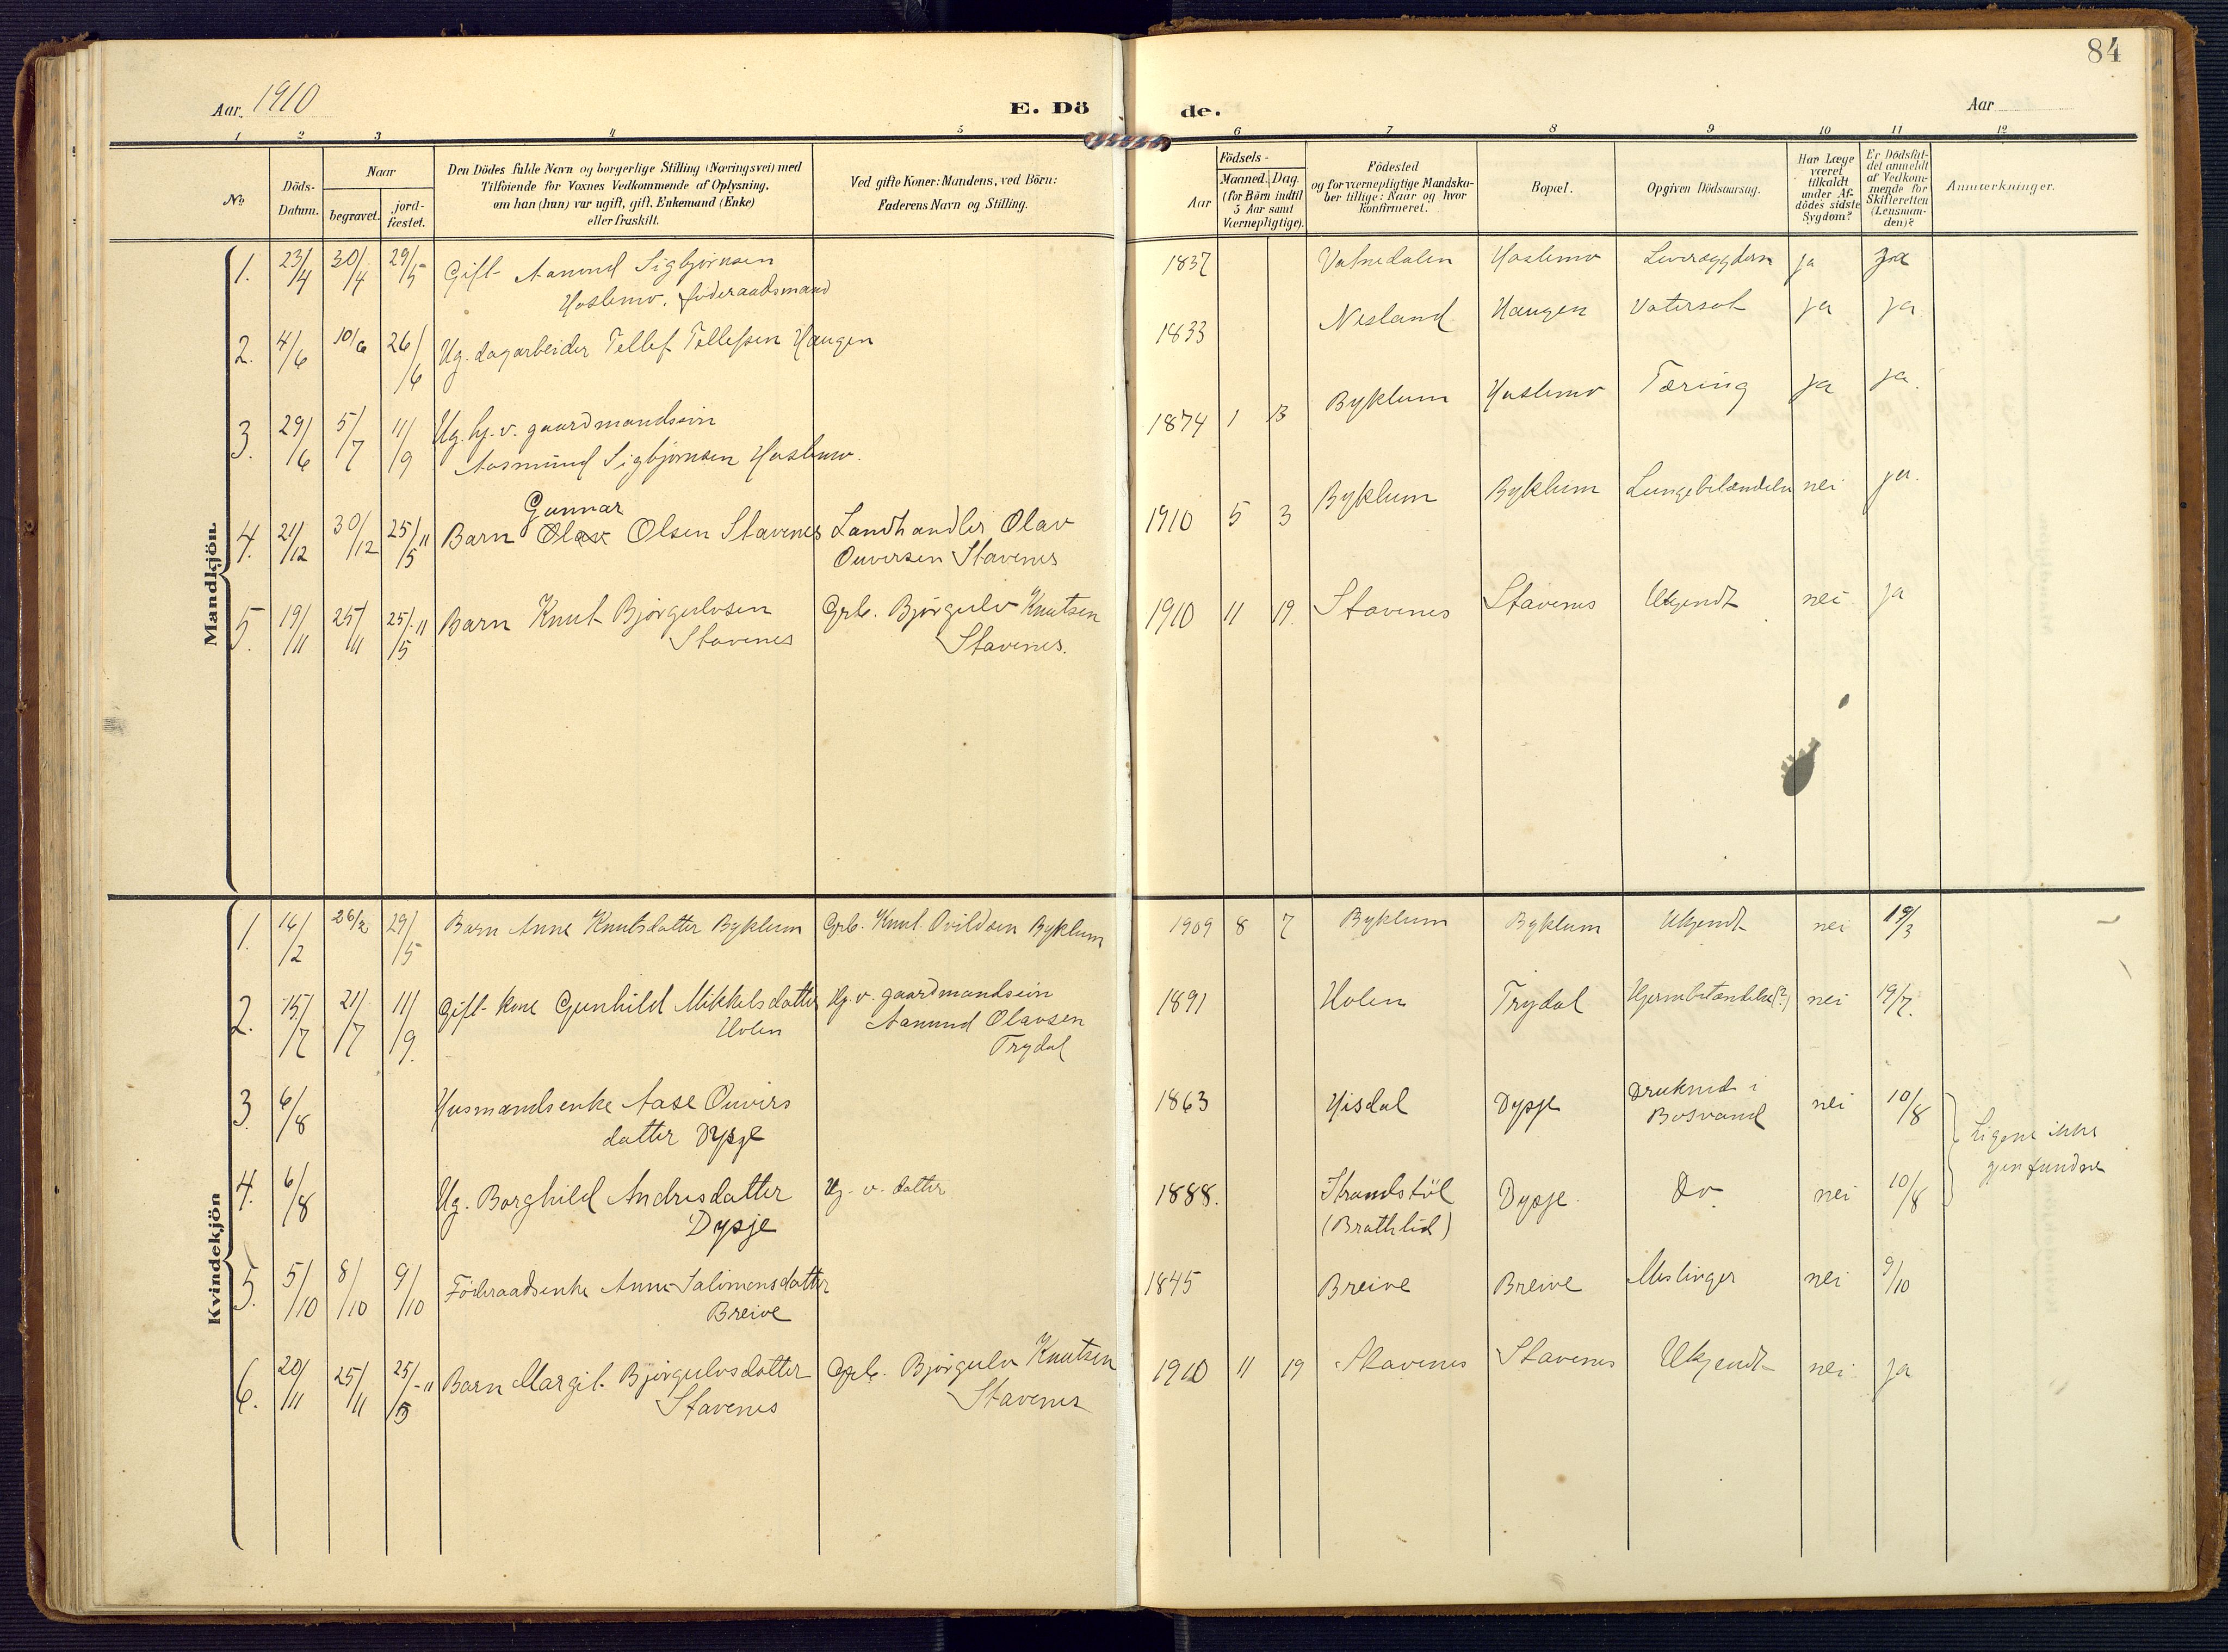 84
Aar. 1910
E. Dö
de.
Aar
1 2 3 4 5 6 7 8 9 10 11 12
No
Döds-
Datum.
Naar
begravet.
jord-
fæstet.
Den Dödes fulde Navn og borgerlige Stilling (Næringsvei) med
Tilföiende for Voxnes Vedkommende af Oplysning,
om han (hun) var ugift, gift, Enkemand (Enke)
eller fraskilt.
Ved gifte Koner: Mandens, ved Börn:
Faderens Navn og Stilling.
Födsels-
Aar
Maaned.
Dag.
(for Börn indtil
5 Aar samt
Værnepligtige).
Födested
og for værnepligtige Mandska-
ber tillige: Naar og hvor
konfirmeret.
Bopæl.
Opgiven Dödsaarsag.
Har Læge
været
tilkaldt
under Af-
dödes sidste
Sygdom?
Er Dödsfal-
det anmeldt
af Vedkom-
mende for
Skifteretten
(Lensman-
den)?
Anmærkninger.
Mandkjön.
1. 23/4 30/4 29/5 Gift Aanund Sigbjørnsen 1837 Vatnedalen Hoslemo ja ja
Hoslemo. føderaadsmand
2. 4/6 10/6 26/6 Ug. dagarbeider Tellef Tellefsen Haugen 1833 Nesland Haugen Vatersot ja ja
3. 29/6 5/7 11/9 Ug. hj. v. gaardmandsøn 1874 1 13 Byklum Hoslemo Tæring ja ja.
Aasmund Sigbjørnsen Hoslemo.
Gunnar
4. 21/12 30/12 25/5 11 Barn Olav Olsen Stavenes Landhandler Olav 1910 5 3 Byklum Byklum Lungebetændelse nei ja.
Ouversen Stavenes
5. 19/11 25/11 25/5 11 Barn Knut Bjørgulvsen Grb. Bjørgulv Knutsen 1910 11 19. Stavenes Stavenes Ukjendt nei ja
Stavenes Stavenes.
Kvindekjön
1. 16/2 26/2 29/5 Barn Anne Knutsdatter Byklum Grb. Knut Byklum 1909 8 7 Byklum Byklum Ukjendt nei 19/3
2. 15/7 21/7 11/9. Gift kone Gunhild Mikkelsdatter Hj. v. gaardmandsøn 1891 Holen Trydal Hjernebetændelse(?) nei 19/7.
Holen Aanund Olavsen
Trydal
3. 6/8 Husmandsenke Aase Ouvers 1863 Hisdal Dysje Druknet i nei 10/8
datter Dysje Bosvand
Ligene ikke
gjenfundne
4. 6/8 Ug. Borghild Andresdatter Hj. v. datter 1888. Strandstøl Dysje. Do nei 10/8
Dysje (Bratthlid)
5. 5/10 8/10 9/10 Føderaadsenke Anne Salimonsdatter 1845 Breive Breive Meslinger nei 9/10
Breive
6. 20/11 25/11 25/5 -11 Barn Margit Bjørgulvsdatter Grb. Bjørgulv Knutsen 1910 11 19 Stavenes Stavenes Ukjendt nei ja
Stavenes Stavenes